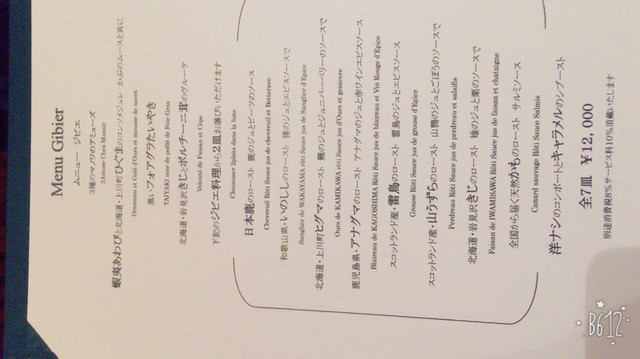 Menu Gibier
ムニュー ジビエ
3種のマノワのアミューズ
3Amuse Chez Manoir
蝦夷あわびと北海道・上川町ひぐまのコンソメジュレ かぶのムースと共に
Ormeaux et Gelée d'Ours et mousse de navet
黒いフォアグラたいやき
TAIYAKI noir de pâté de Foie Gras
北海道・岩見沢きじとポルチーニ茸のヴルーテ
Velouté de Faisan et Cèpe
下記のジビエ料理から2皿お選びいただけます
Choisissez 2plats dans la liste
日本鹿のロースト 鹿のジュとビーツのソース
Chevreuil Rôti Sauce jus de chevreuil et Betterave
和歌山県・いのししのロースト 猪のジュとエピスソースで
Sanglier de WAKAYAMA rôti Sauce jus de Sanglier d'Epice
北海道・上川町ヒグマのロースト 羆のジュとジュニパーベリーのソースで
Ours de KAMIKAWA rôti Sauce jus d'Ours et genièvre
鹿児島県・アナグマのロースト アナグマのジュと赤ワインエピスソース
Blaireau de KAGOSHIMA Rôti Sauce jus de blaireau et Vin Rouge d'Epice
スコットランド産・雷鳥のロースト 雷鳥のジュとエピスソース
Grouse Rôti Sauce jus de grouse d'Epice
スコットランド産・山うずらのロースト 山鶉のジュとごぼうのソースで
Perdreau Rôti Sauce jus de perdreau et salsifis
北海道・岩見沢きじのロースト 雉のジュと栗のソースで
Faisan de IWAMISAWA Rôti Sauce jus de faisan et chataigne
全国から届く天然かものロースト サルミソース
Canard sauvage Rôti Sauce Salmis
洋ナシのコンポートとキャラメルのシブースト
全7皿 ¥12,000
別途消費税8%サービス料10%頂戴いたします
B612